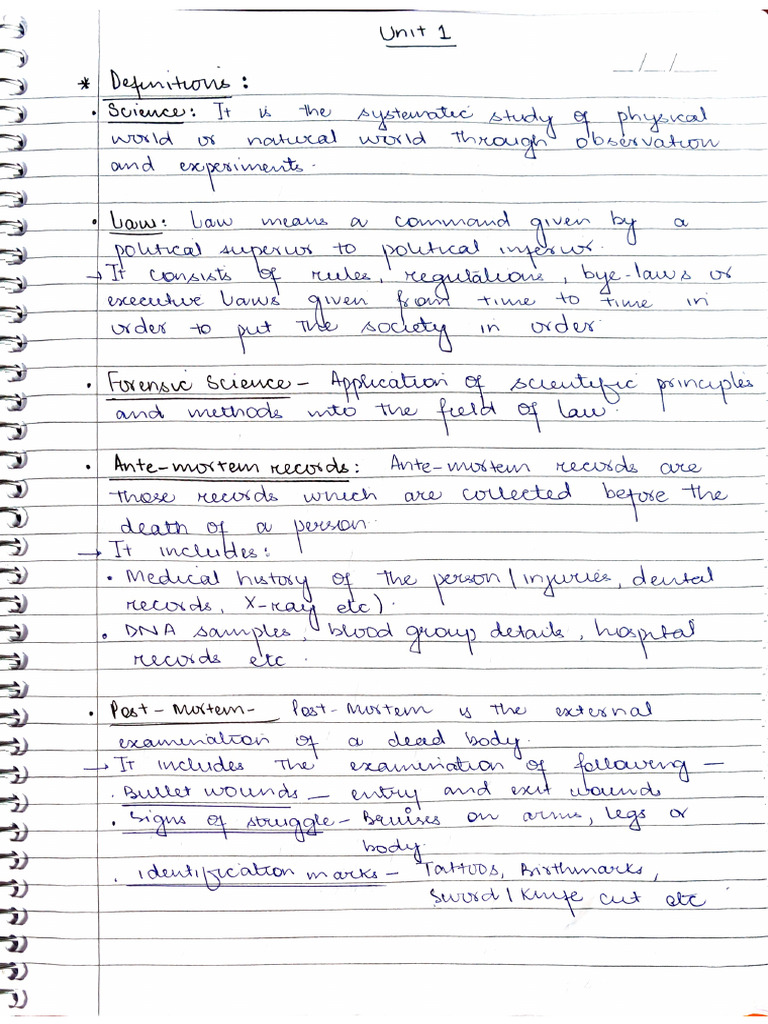 Unit 1
__/__/____
* Definitions :
• Science : It is the systematic study of physical
world or natural world through observation
and experiments.
• Law : Law means a command given by a
political superior to political inferior.
→ It consists of rules, regulations, bye-laws or
executive laws given from time to time in
order to put the society in order.
• Forensic Science - Application of scientific principles
and methods into the field of law.
• Ante-mortem records : Ante-mortem records are
those records which are collected before the
death of a person.
→ It includes :
• Medical history of the person / injuries, dental
records, X-ray etc).
• DNA samples, blood group details, hospital
records etc.
• Post-Mortem - Post-Mortem is the external
examination of a dead body.
→ It includes the examination of following -
• Bullet wounds - entry and exit wounds
• Signs of struggle - Bruises on arms, legs or
body.
• Identification marks - Tattoos, Birthmarks,
Sword / Knife cut etc